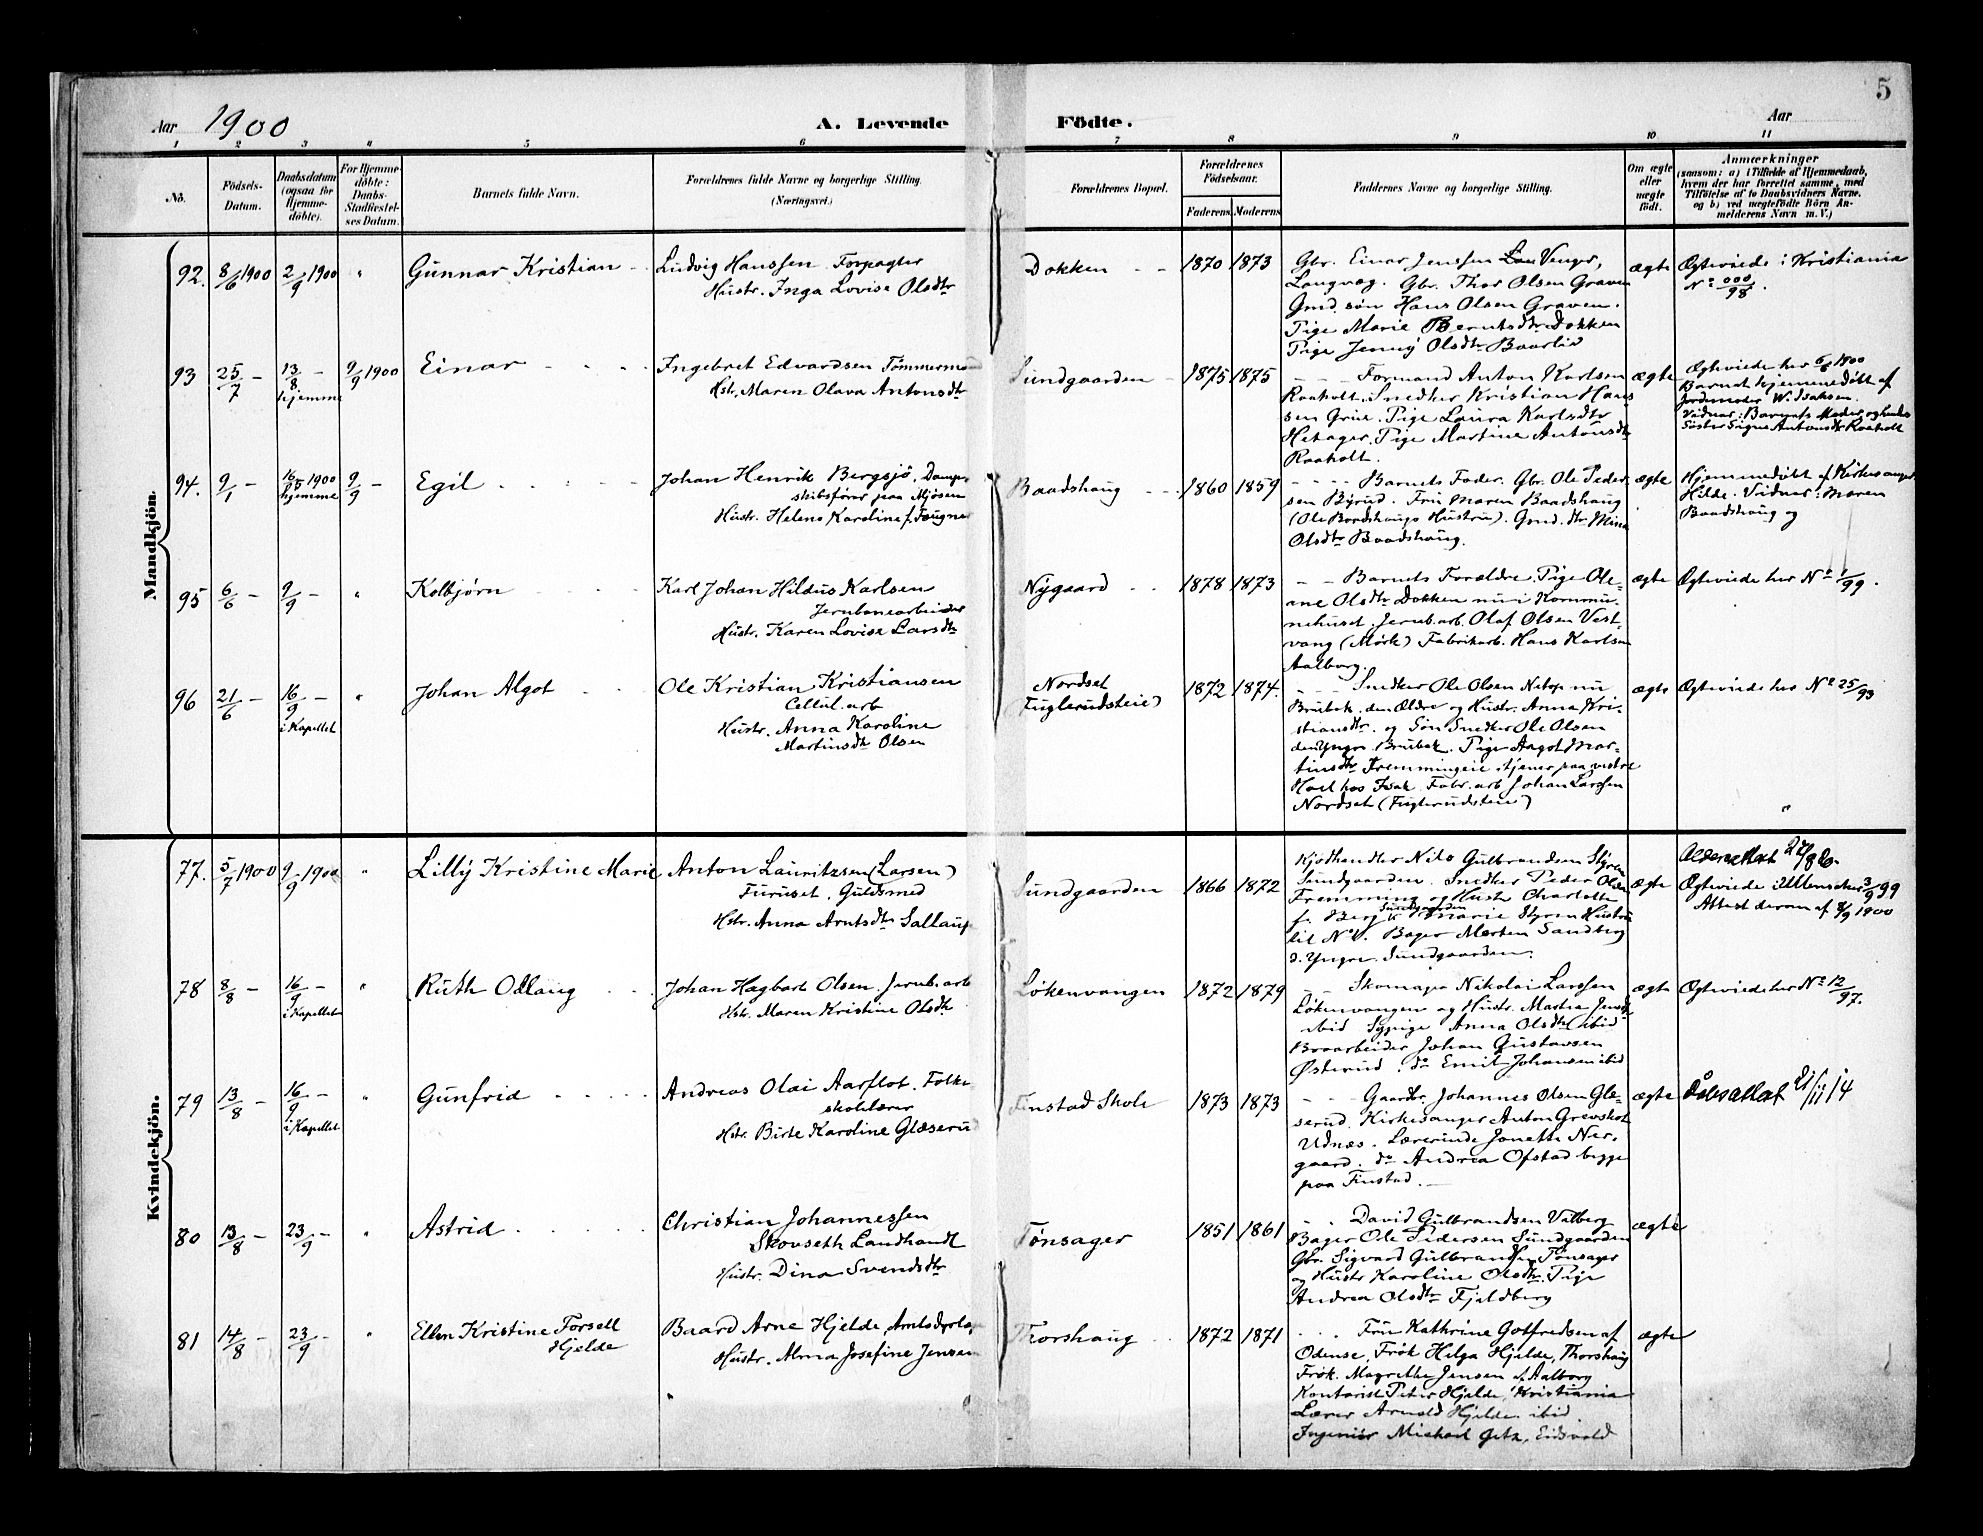 5
Aar 1900
A. Levende Födte.
Aar
1 2 3 4 5 6 7 8 9 10 11
No.
Födsels-
Datum.
Daabsdatum
(ogsaa for
Hjemme-
döbte).
For Hjemme-
döbte:
Daabs-
Stadfæstel-
ses Datum.
Barnets fulde Navn.
Forældrenes fulde Navne og borgerlige Stilling.
(Næringsvei.)
Forældrenes Bopæl.
Forældrenes
Födselsaar.
Faderens Moderens
Faddernes Navne og borgerlige Stilling.
Om ægte
eller
uægte
født.
Anmærkninger
(saasom: a) i Tilfælde af Hjemmedaab,
hvem der har forrettet samme, med
Tilföielse af to Daabsvidners Navne,
og b) ved uægtefödte Börn An-
melderens Navn m. V.)
Mandkjön.
92. 8/6 1900 2/9 1900 "
Gunnar Kristian
Ludvig Hanssen Forpagter
Hustr. Inga Lovise Olsdtr
Dokken
1870 1873
Gbr. Einar Jenssen
Langvæg. Gbr. Thor Olsen Graven
Gmd. søn Hans Olsen Graven.
Pige Marie Berntsdtr Dokken
Pige Jenny Olsdtr Baarlid
ægte
Ægteviede i Kristiania
No 000/98.
93 25/7 – 13/8 – hjemme 9/9 1900
Einar
Ingebret Edvardsen Tømmermand
Hstr. Maren Olava Antonsdtr
Sundgaarden
1875 1875
Formand Anton Karlsen
Raaholt. Snedker Kristian Hans
sen Grue. Pige Laura Karlsdtr
Pige Martine Antonsdtr
Raaholt.
ægte
Ægteviede her 6/6 1900
Barnet hjemmedöbt af
Jordemoder W. Isaksen.
Vidner: Barnets Moder og hendes
Søster Signe Antonsdtr Raaholt
94. 9/1 – 16/5 1900 hjemme 9/9 –
Egil
Johan Henrik Bergsjö, Damp-
skibsfører paa Mjøsen
Hustr. Helene Karoline f. Faugner
Baadshaug
1860 1859
Barnets Fader. Gbr. Ole Peder-
sen Byrud. Fru Maren Baadshaug
(Ole Baadshaugs Hustru). Gmd. dtr Mina
Olsdtr Baadshaug.
ægte
Hjemmedöbt af Kirkesanger
Hilde. Vidner: Maren
Baadshaug og
95 6/6 – 9/9 – "
Kolbjørn
Karl Johan Hildus Karlsen
Jernbanearbeider
Hustr. Karen Lovise Larsdtr
Nygaard
1878 1873
Barnets Forældre. Pige Ole-
ane Olsdtr Dokken nu i Kommu-
nehuset. Jernb. arb. Olaf Olsen Vest-
vang (Mørk) Fabrikarb. Hans Karlsen
Aalborg.
ægte
Ægteviede her No 1/99.
96 21/6 – 16/9 – i Kapellet "
Johan Algot
Ole Kristian Kristiansen
Cellul. arb
Hustr. Anna Karoline
Martinsdtr Olsen
Nordset
Fuglerudsteie)
1872 1874.
Snedker Ole Olsen Nitop nu
Brubak, den Ældre og Hustr. Anna Kri-
stiansdtr. og Søn Snedker Ole Olsen
den Yngre Brubak. Pige Aagot Mar-
tinsdtr Fremmingeie tjener paa vestre
Hol hos Isak. Fabr. arb Johan Larssen
Nordset (Fuglerudsteie)
ægte
Ægteviede her No 25/93
"
Kvindekjön.
77. 5/7 1900 9/9 1900 "
Lilly Kristine Marie
Anton Lauritzsen (Larsen)
Furuset, Guldsmed
Hstr. Anna Arntsdtr Sallaup
Sundgaarden
1866 1872
Kjödhandler Nils Gulbrandsen Styren
Sundgaarden. Snedker Peder Olsen
Fremming og Hustr Charlotte
f. Berg Sundgaarden Marie Styren Hustru
til No 1. Bager Morten Sandberg
d. Yngre. Sundgaarden.
ægte
Aldersattest
Ægteviede i Ullensaker 3/9 99
Attest derom af 8/9 1900
78 8/8 – 16/9 – i Kapellet "
Ruth Odlaug
Johan Hagbart Olsen. Jernb. arb
Hstr. Maren Kristine Olsdtr
Løkenvangen
1872 1879
Skomager Nikolai Larssen
Løkenvangen og Hustr. Mathea Jensdtr
ibid Sypige Anna Olsdtr ibid
Braarbeider Johan Gustavsen
Østerud. do Emil Johansen ibid
ægte
Ægteviede her No 12/97.
79 13/8 – 16/9 – i Kapellet "
Gunfrid
Andreas Olai Aarflot. Folke
skolelærer
Hstr. Birte Karoline Glæserud
Finstad Skole
1873 1873
Gaardbr. Johannes Olsen Glæ-
serud. Kirkesanger Anton Grevskott
Udnæs. Lærerinde Jonette Ner-
gaard. do Andrea Ofstad begge
paa Finstad.
ægte
Dåbsattest 21/11 14
80 13/8 – 23/9 – "
Astrid
Christian Johannessen
Skovseth Landhandl
Hustr. Dina Svendsdtr
Tønsager
1851 1861
David Gulbrandsen Valberg
Bager Ole Pedersen Sundgaarden
Gbr. Sigvard Gulbrandsen Tønsager
og Hustr Karoline Olsdtr. Pige
Andrea Olsdtr Fjeldberg
ægte
81 14/8 – 23/9 – "
Ellen Kristine Forsell
Hjelde
Baard Arne Hjelde, Amtsdyrlæge
Hustr. Alma Josefine Jensen
Thorshaug
1872 1871
Fru Kathrine Gotfredsen af
Odense, Frøk Helga Hjelde, Thorshaug
Frøk. Magrethe Jensen af Aalborg
Kontorist Peter Hjelde, Kristiania
Lærer Arnold Hjelde ibid.
Ingeniør Michael Getz, Eidsvold
ægte